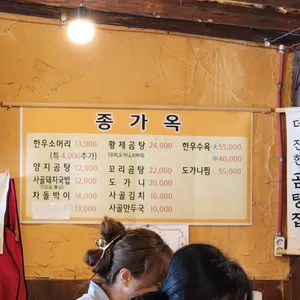 종가옥
한우소머리 13,000
(특 4,000추가)
양지곰탕 12,000
사골돼지국밥 12,000
차돌박이 14,000
황제곰탕 24,000
(꼬리,도가니,소머리)
꼬리곰탕 22,000
도가니 20,000
사골김치 10,000
사골만두국 10,000
한우수육 大 55,000
中 40,000
도가니찜 55,000
더
진
한
곰
탕
집